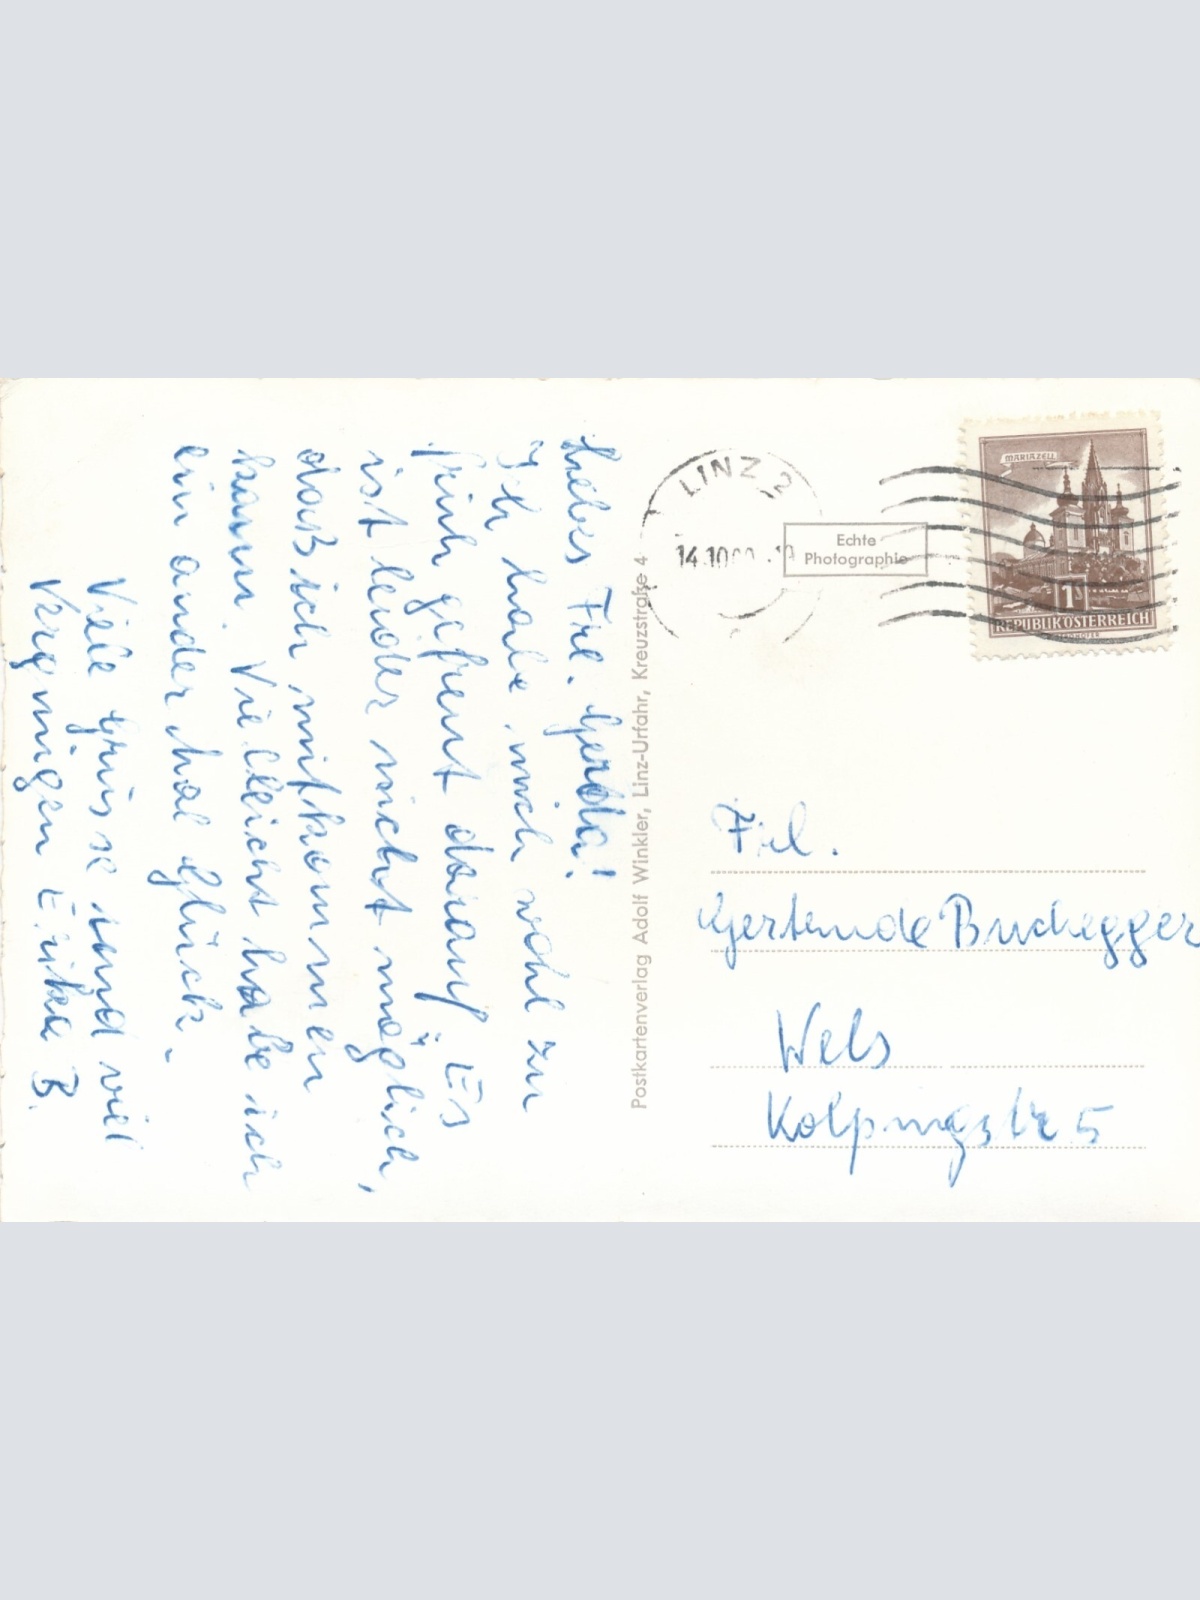 Liebes Frl. Gerda!
Ich habe mich wohl zu
früh gefreut darauf. Es
ist leider nicht möglich,
daß ich mitkommen
kann. Vielleicht habe ich
ein ander mal Glück.
Viele Grüsse und viel
Vergnügen Erika B.
Postkartenverlag Adolf Winkler, Linz-Urfahr, Kreuzstraße 4
LINZ 2
14.10
Echte
Photographie
MARIAZELL
1S
REPUBLIK ÖSTERREICH
Frl.
Gertraude Buchegger
Wels
Kolpingstr 5